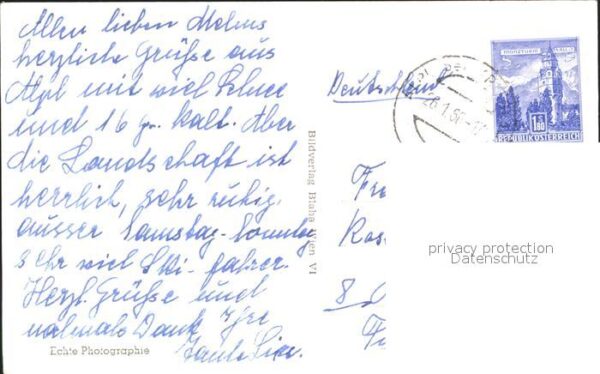 Allen lieben
herzliche Grüße aus
Alpl mit viel Schnee
und 16 gr. kalt. Aber
die Landschaft ist
herrlich, sehr ruhig,
ausser Samstag-Sonntag
s Ehr viel Ski-fahrer.
Herzl. Grüße und
nahmals Dank Ihre
Echte Photographie
Bildverlag Blaha Wien VI
Deutschland
REPUBLIK ÖSTERREICH
1.80
Fr
Kas
8
privacy protection
Datenschutz